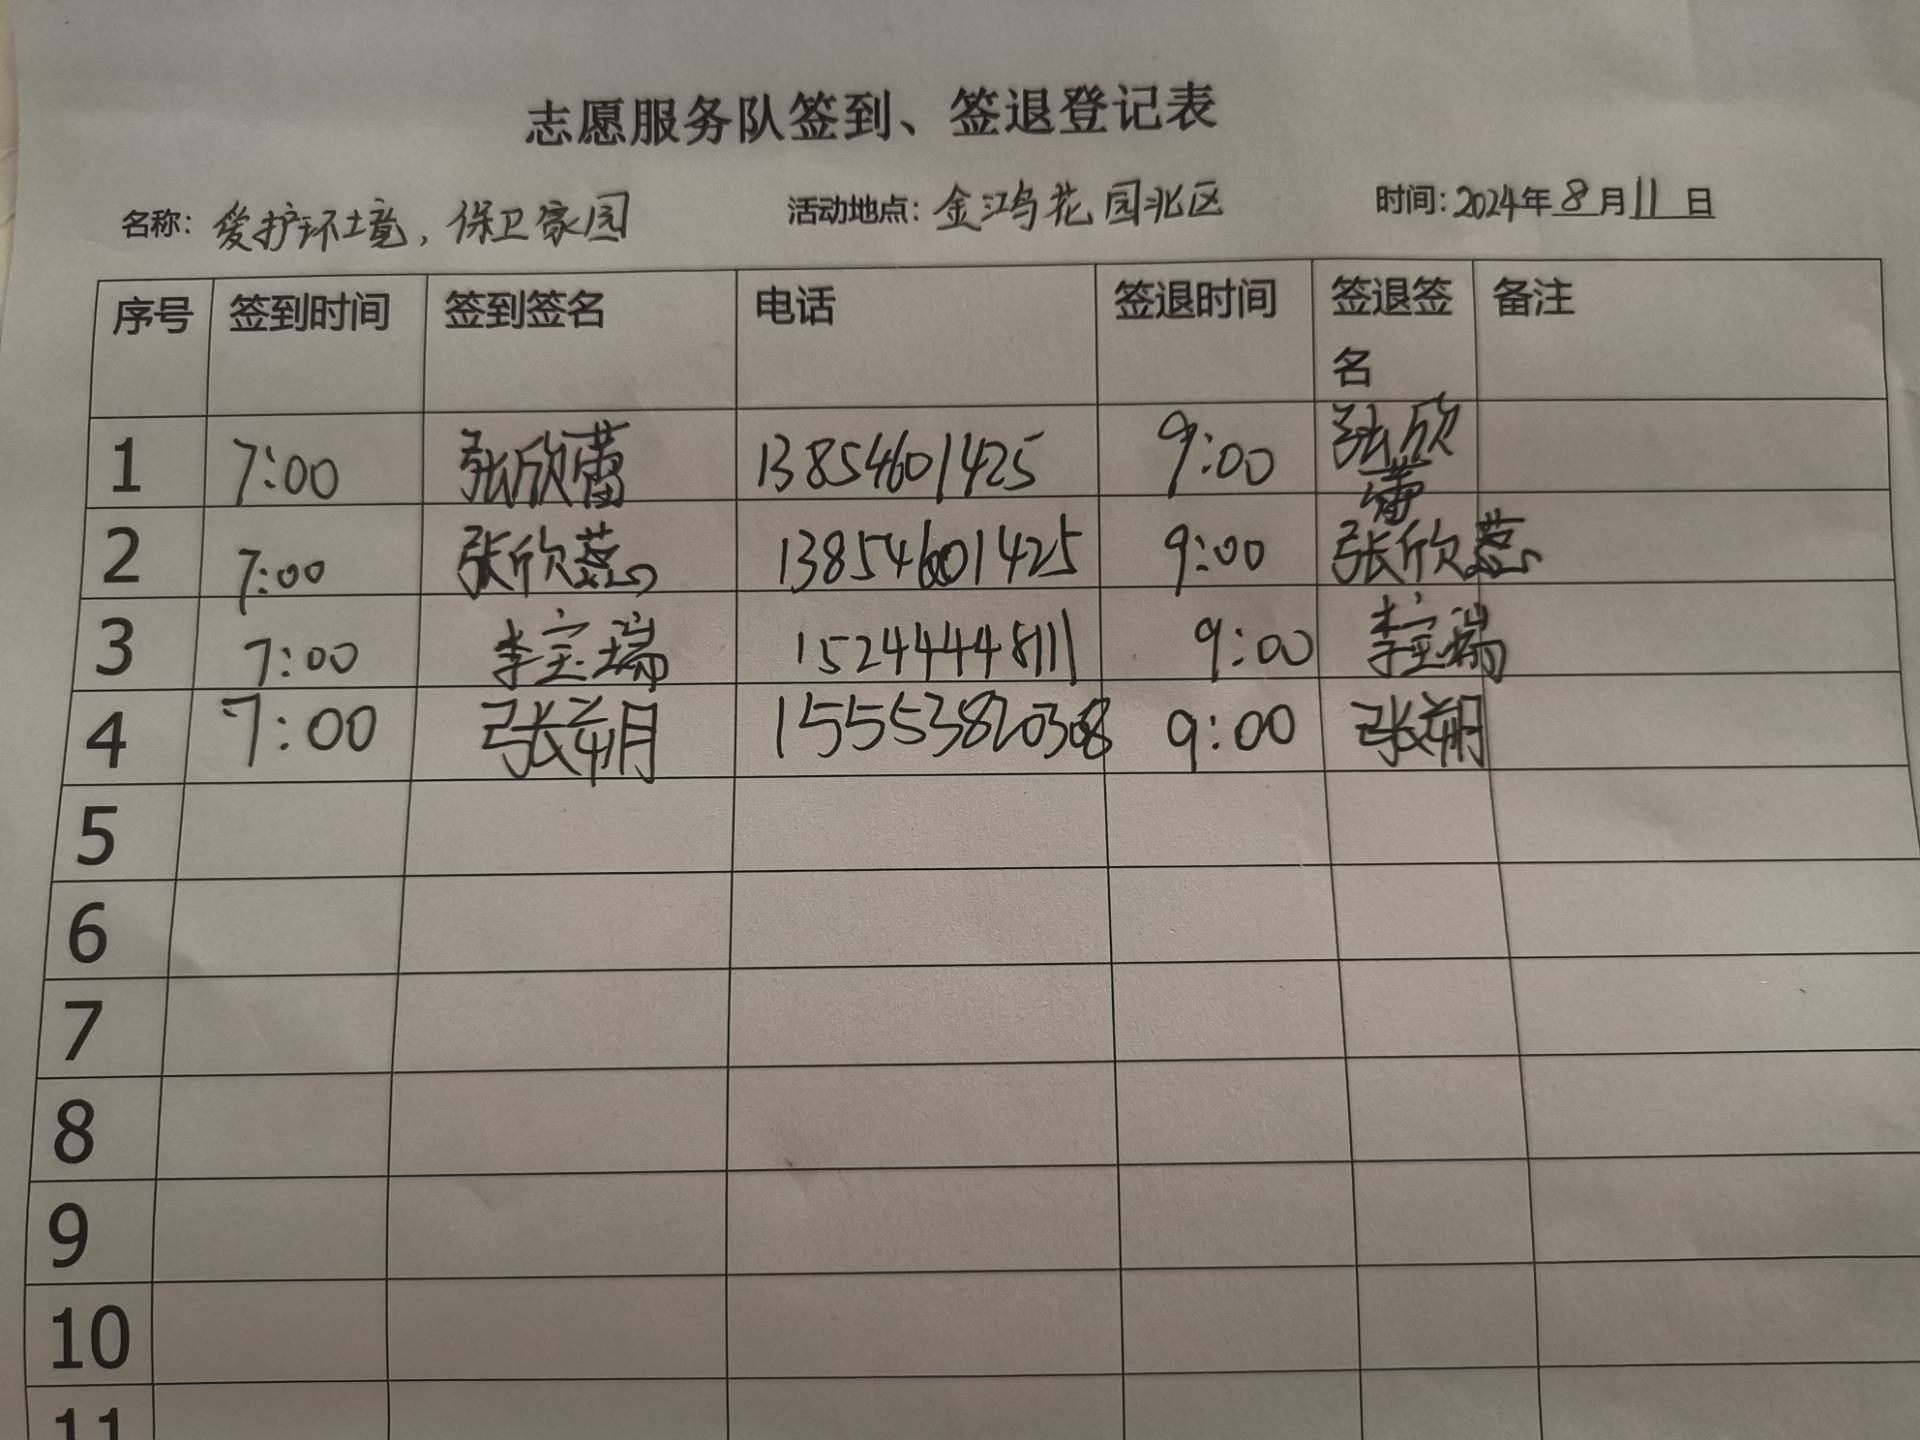 志愿服务队签到、签退登记表
名称：爱护环境，保卫家园 活动地点：金鸿花园北区 时间：2024年8月11日
序号 签到时间 签到签名 电话 签退时间 签退签名 备注
1 7:00 张欣蕾 13854601425 9:00 张欣蕾
2 7:00 张欣蕊 13854601425 9:00 张欣蕊
3 7:00 李宝瑞 15244448111 9:00 李宝瑞
4 7:00 张朔 9:00 张朔
5
6
7
8
9
10
11